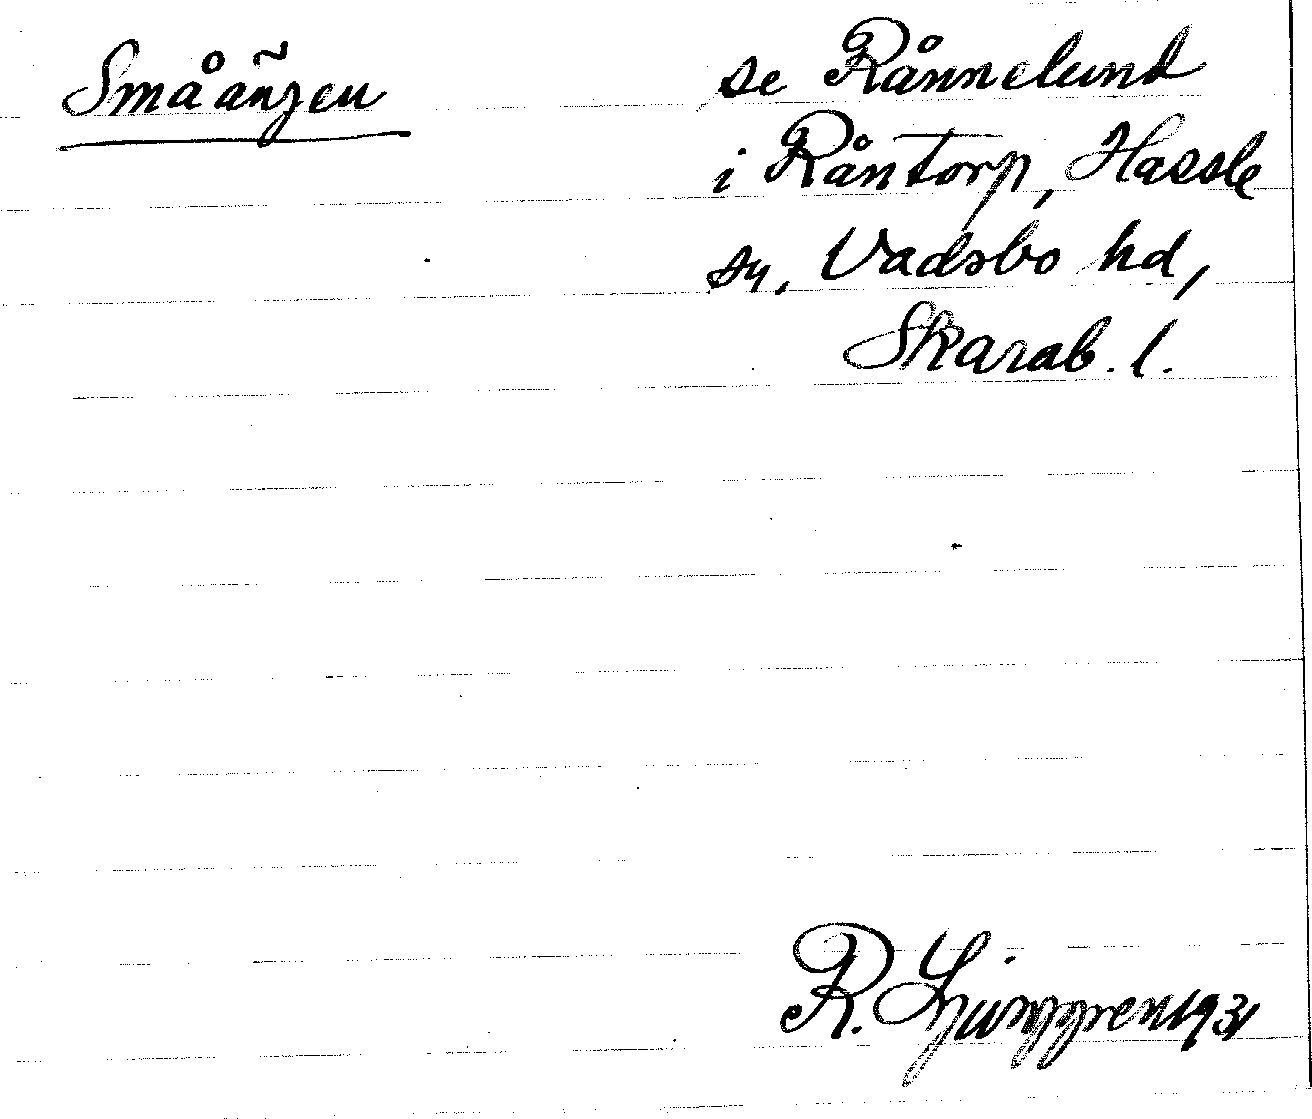 Småängen
se Rånnelund
i Råntorp, Hassle
sn, Vadsbo hd,
Skarab. l.
R. Ljunggren 1931